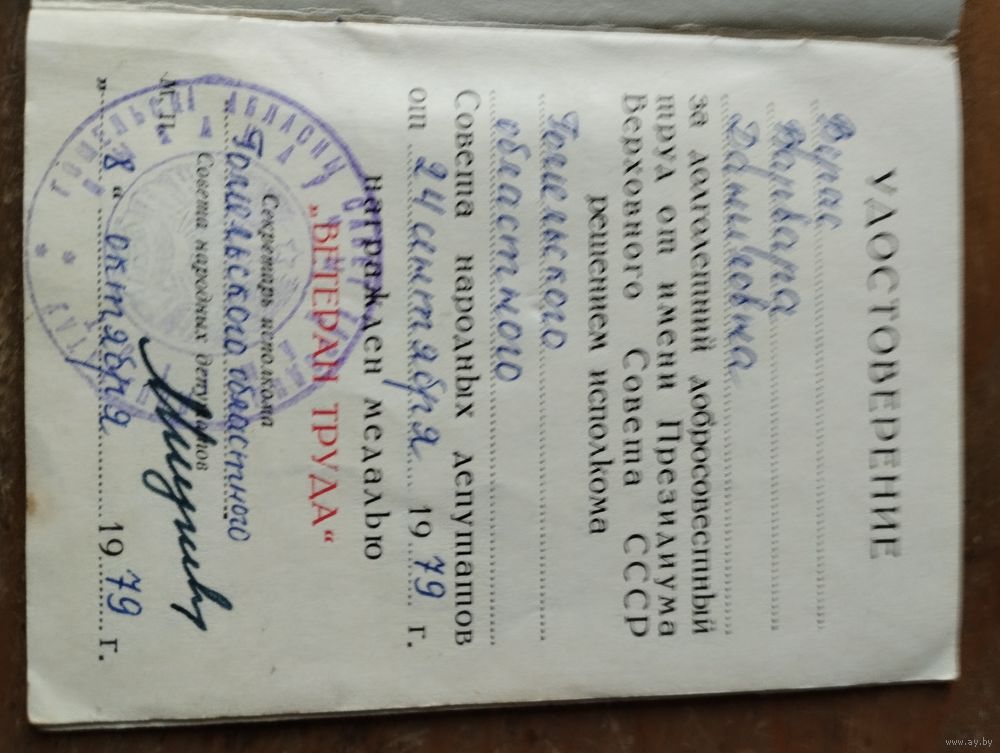 УДОСТОВЕРЕНИЕ
Вупас
Варвара
Даниловна
за долголетний добросовестный
труд от имени Президиума
Верховного Совета СССР
решением исполкома
Гомельского
областного
Совета народных депутатов
от 24 сентября 1979 г.
награжден медалью
„ВЕТЕРАН ТРУДА“
Секретарь исполкома
Гомельского областного
Совета народных депутатов
М. П.
„8“ октября 1979 г.
www.ay.by